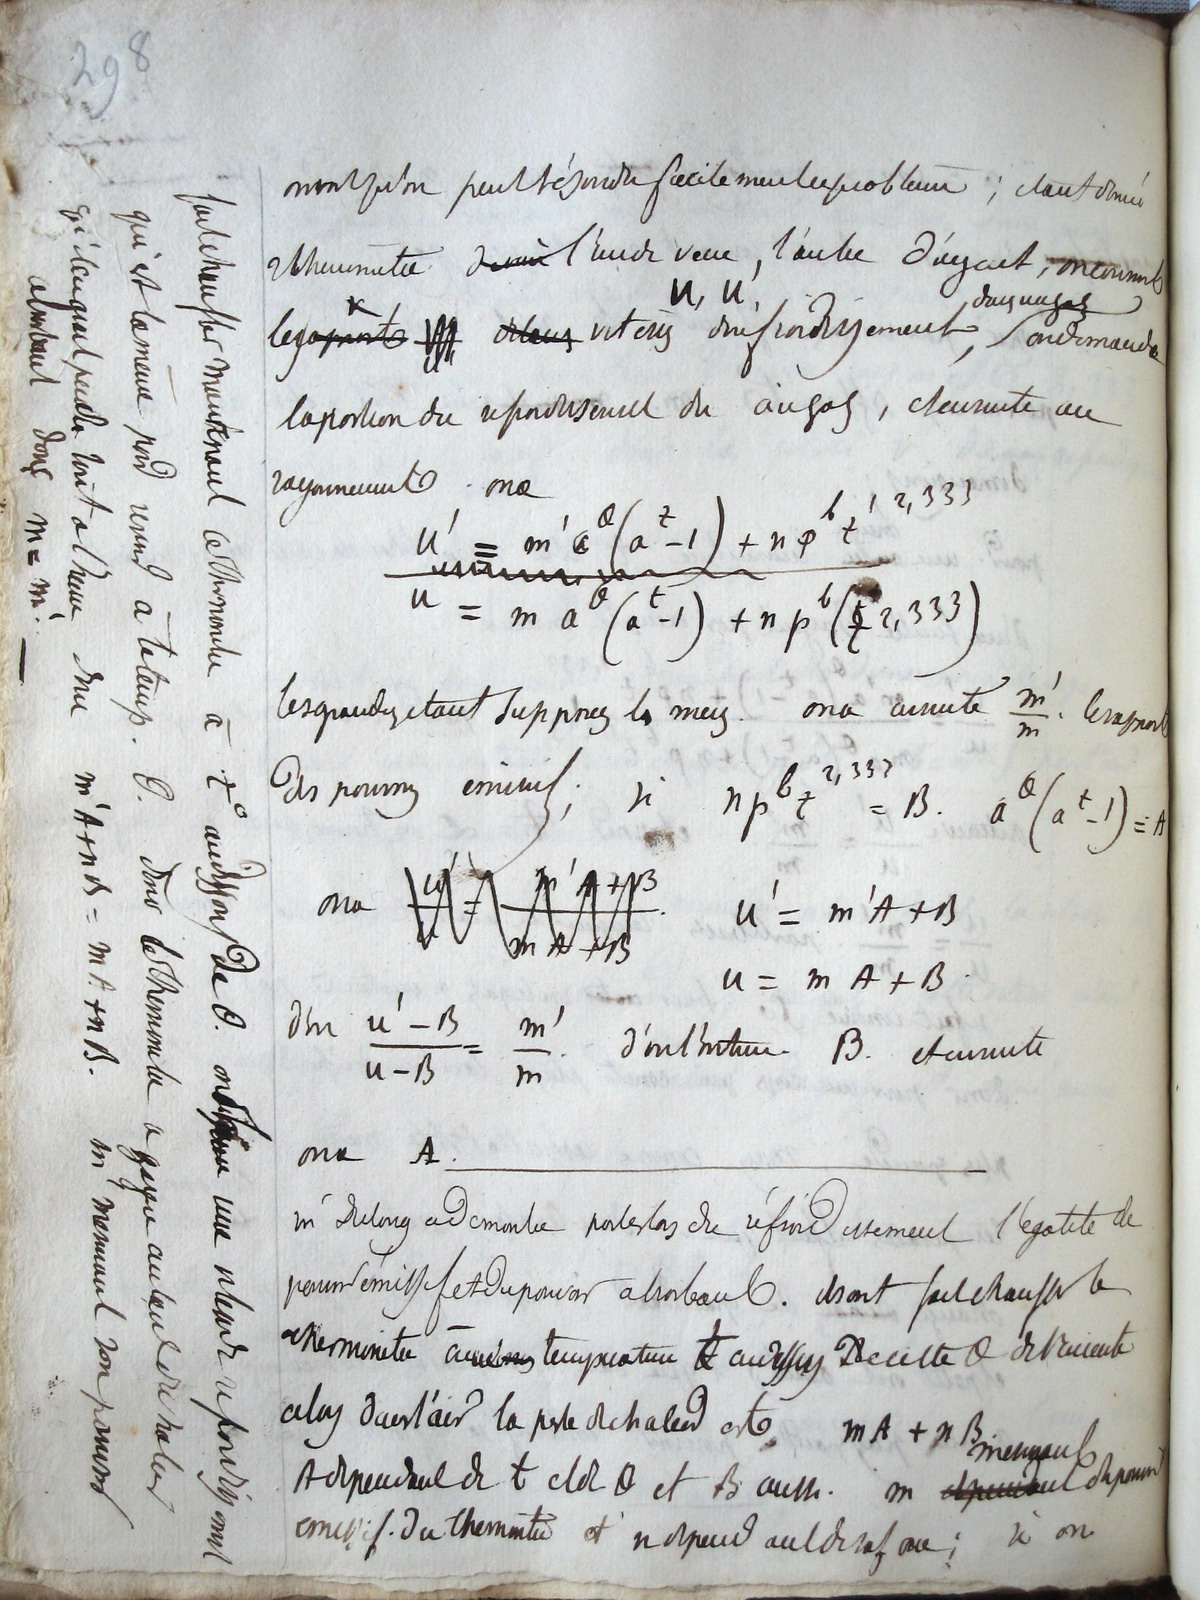 298
on voit qu'on peut résoudre facilement le problème ; étant donné
thermomètre l'un de verre, l'autre d'argent, on connait
le rapport vitesses u, u' de refroidissement, dans un gaz on demande
la portion du refroidissement du au gaz, et ensuite au
rayonnement. on a
u' = m' a^θ (a^t - 1) + n p^b t^{2,333}
u = m a^θ (a^t - 1) + n p^b (t^{2,333})
les grandeurs étant supposées les mêmes. on a ensuite m'/m. le rapport
des pouvoirs émissifs ; si n p^b t^{2,333} = B. a^θ (a^t - 1) = A
on a u'/u = m'A + B / mA + B . u' = m'A + B
u = m A + B.
d'où u' - B / u - B = m'/m. d'où l'on tire B. et ensuite
on a A.
mr Dulong a démontré par les lois du refroidissement l'égalité du
pouvoir émissif et du pouvoir absorbant. Soit fait chauffer le
thermomètre à température t au dessus de celle θ de l'enceinte
alors dans l'air la perte de chaleur est mA + nB
A dépendant de t et de θ et B aussi. m mesurant du pouvoir
émissif du thermomètre et n dépend de surface ; si on
fait chauffer maintenant le thermomètre à t° au dessous de θ. une
qui est la même pour revenir à temp. θ. donc le thermomètre a gagné autant de chaleur
qu'il en avait perdu tout à l'heure donc m'A + nB = mA + nB. m' mesurant son pouvoir
absorbant donc m = m'.